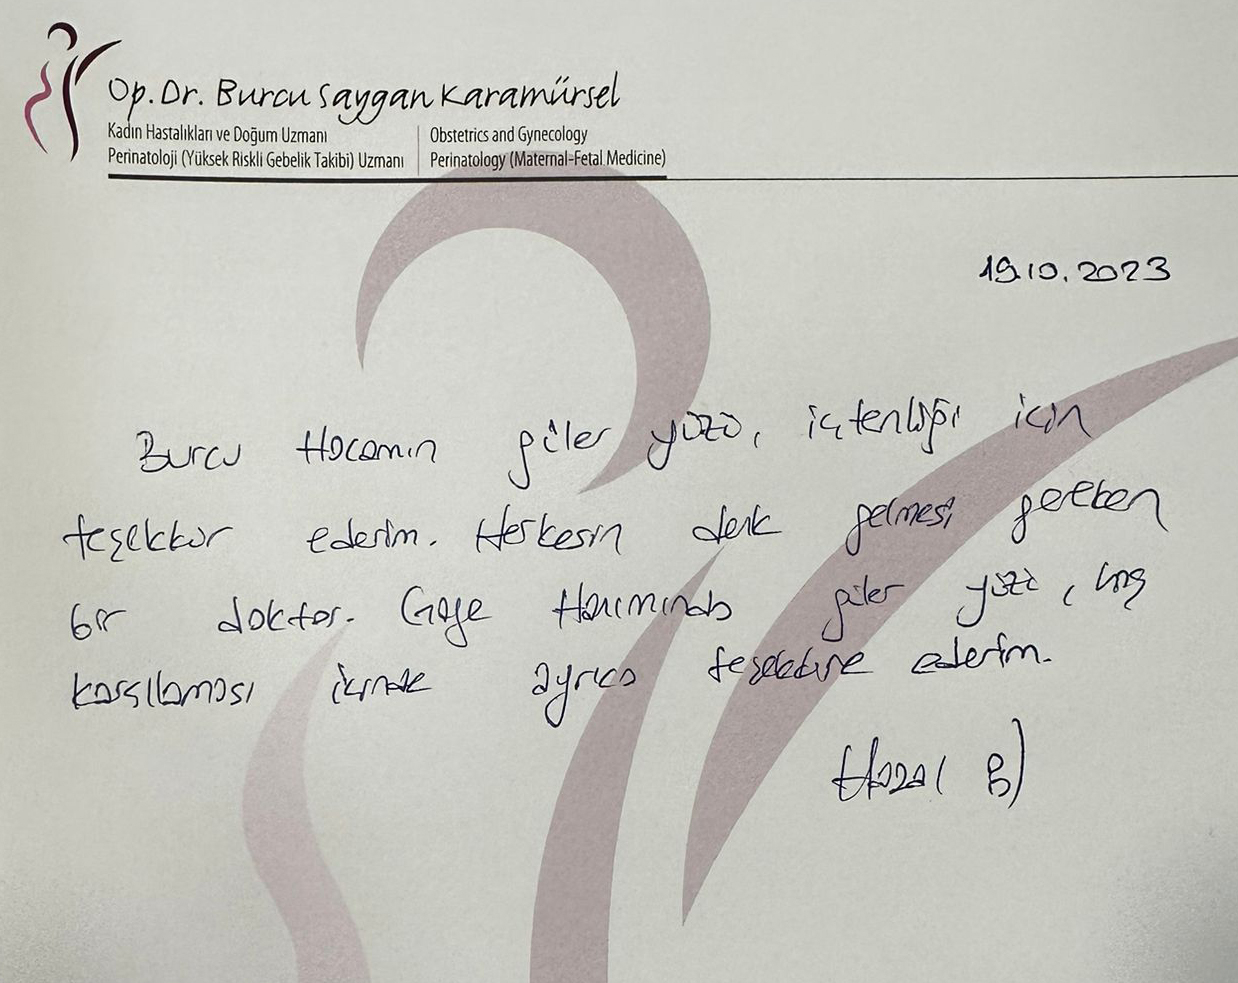 Op. Dr. Burcu Saygan Karamürsel
Kadın Hastalıkları ve Doğum Uzmanı
Perinatoloji (Yüksek Riskli Gebelik Takibi) Uzmanı
Obstetrics and Gynecology
Perinatology (Maternal-Fetal Medicine)
19.10.2023
Burcu Hocamın güler yüzü, içtenliği için
teşekkür ederim. Herkesin denk gelmesi gereken
bir doktor. Gaye Hanımında güler yüzü,
karşılaması içinde ayrıca teşekkür ederim.
Hazal B